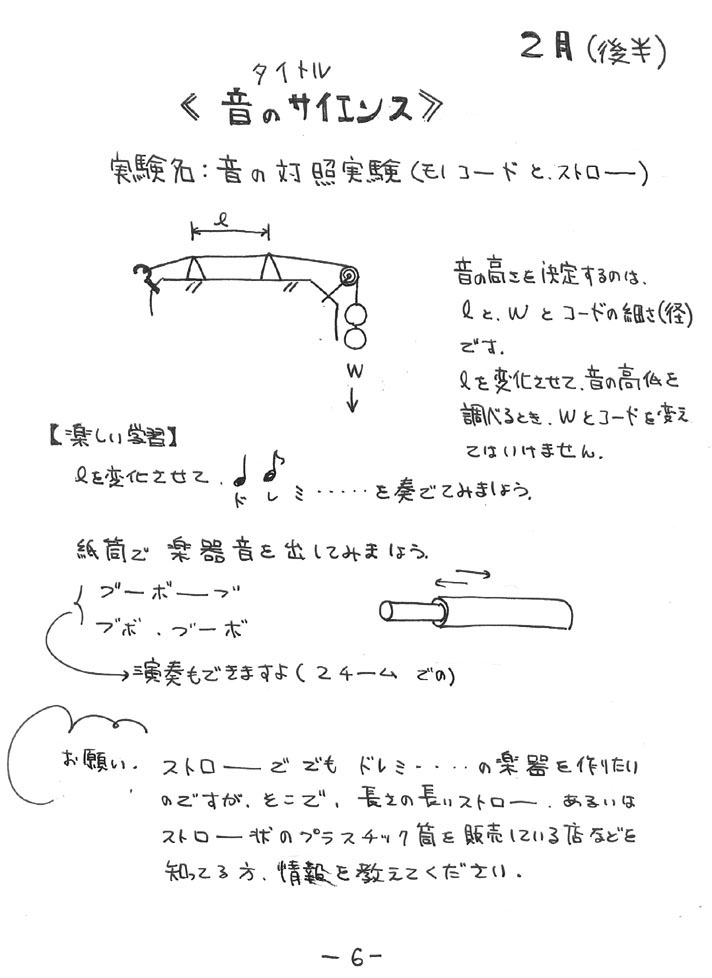 2月(後半)
タイトル
《音のサイエンス》
実験名:音の対照実験(モノコードと、ストロー)
l
W
音の高さを決定するのは、
lと、Wとコードの細さ(径)
です.
lを変化させて、音の高低を
調べるとき、Wとコードを変え
てはいけません.
【楽しい学習】
lを変化させて、♩♪
ド レ ミ ・・・・・ を奏でてみましょう.
紙筒で 楽器音を出してみましょう.
ブーボーブ
ブボ、ブーボ
演奏もできますよ(2チームでの)
お願い.
ストローででも ドレミ・・・・の楽器を作りたい
のですが、そこで、長さの長いストロー、あるいは
ストロー状のプラスチック筒を販売している店などを
知ってる方、情報を教えてください.
-6-